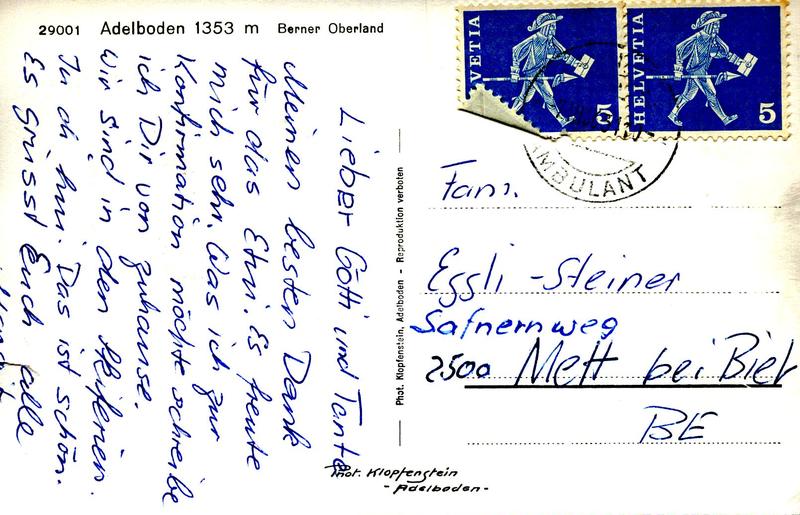 29001 Adelboden 1353 m Berner Oberland
Lieber Götti und Tante
Meinen besten Dank
für das Etui. Es freute
mich sehr. Was ich zur
Konfirmation möchte schreibe
ich Dir von zuhause.
Wir sind in den Skiferien.
Es grüsst Euch alle
Phot. Klopfenstein, Adelboden - Reproduktion verboten
HELVETIA 5
VETIA 5
AMBULANT
Fam.
Eggli-Steiner
Safnernweg
2500 Mett bei Biel
BE
Phot. Klopfenstein
- Adelboden -